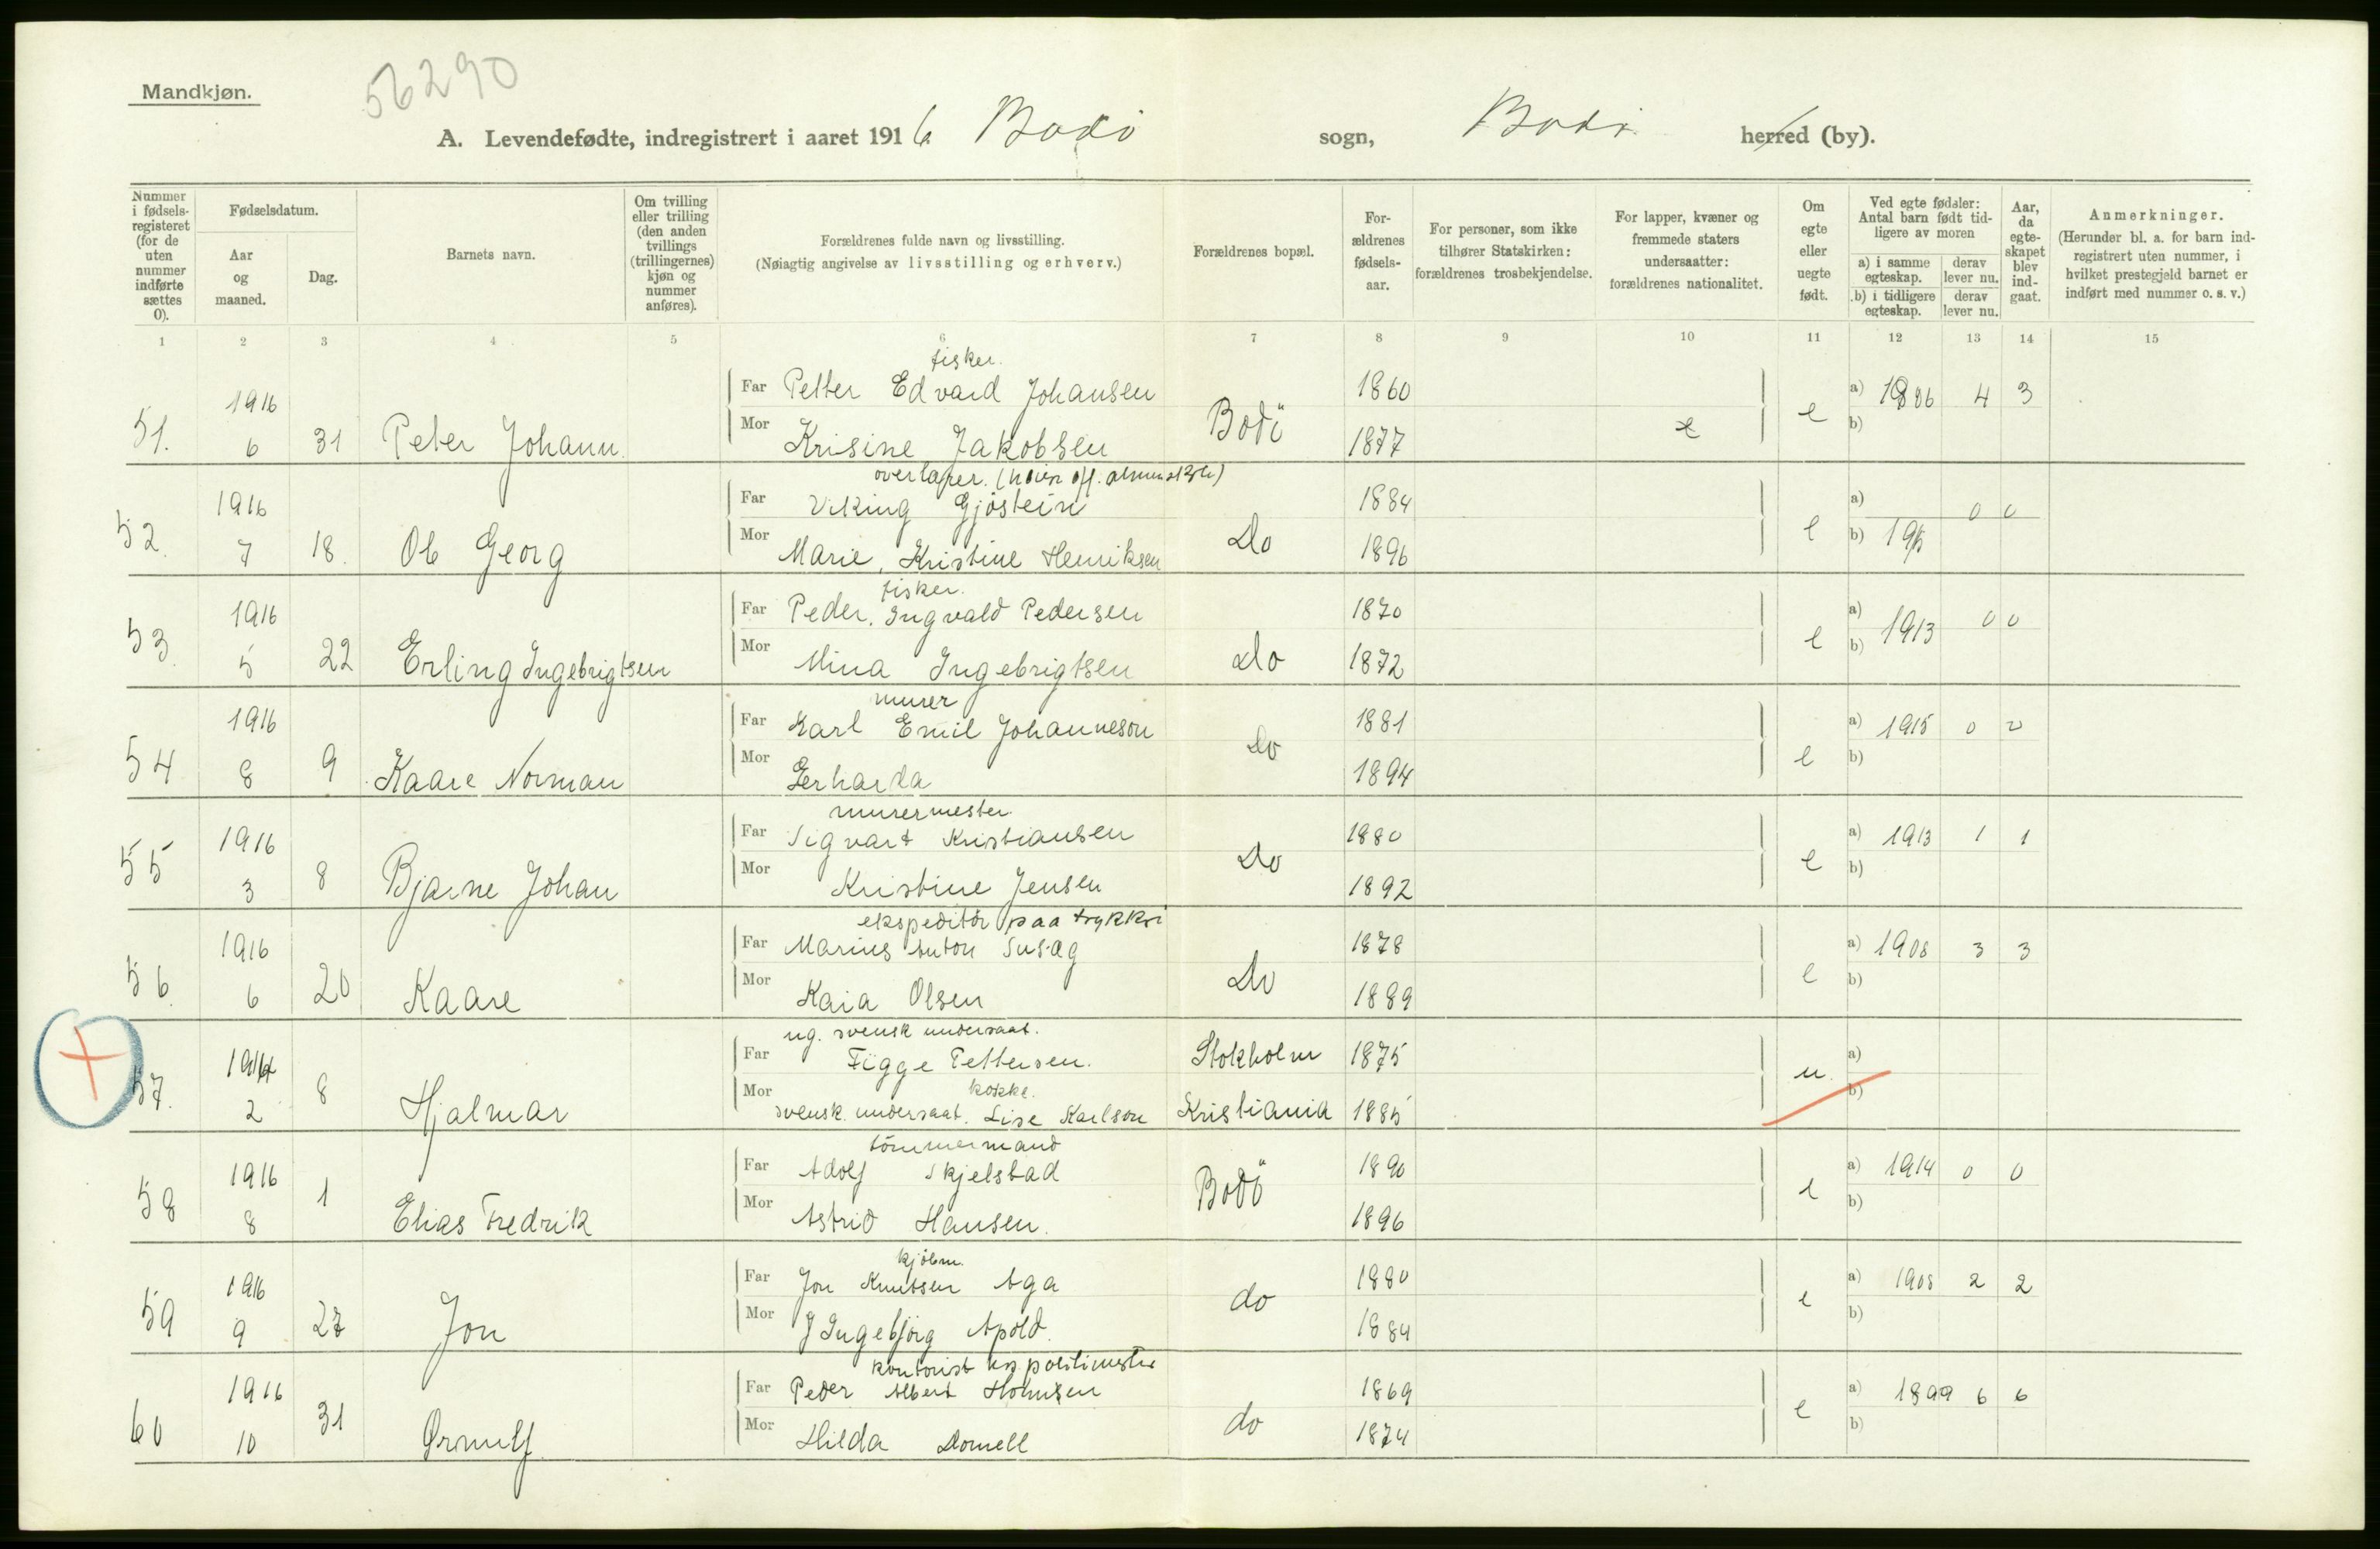 Mandkjøn.
56290
A. Levendefødte, indregistrert i aaret 1916 Bodö sogn, Bodö herred (by).
Nummer i fødselsregisteret (for de uten nummer indførte sættes 0).
Fødselsdatum.
Aar og maaned.
Dag.
Barnets navn.
Om tvilling eller trilling (den anden tvillings (trillingernes) kjøn og nummer anføres).
Forældrenes fulde navn og livsstilling.
(Nøiagtig angivelse av livsstilling og erhverv.)
Forældrenes bopæl.
Forældrenes fødselsaar.
For personer, som ikke tilhører Statskirken: forældrenes trosbekjendelse.
For lapper, kvæner og fremmede staters undersaatter: forældrenes nationalitet.
Om egte eller uegte født.
Ved egte fødsler: Antal barn født tidligere av moren
a) i samme egteskap. derav lever nu.
b) i tidligere egteskap. derav lever nu.
Aar, da egteskapet blev indgaat.
Anmerkninger.
(Herunder bl. a. for barn indregistrert uten nummer, i hvilket prestegjeld barnet er indført med nummer o. s. v.)
1 2 3 4 5 6 7 8 9 10 11 12 13 14 15
fisker.
51. 1916 6 31 Peter Johann Far Petter Edvard Johansen Bodö 1860 e a) 1806 4 3
Mor Krisine Jakobsen 1877 e b)
overlærer.
52. 1916 7 18. Ole Georg Far Viking Gjöstein Do 1884 e a) 0 0
Mor Marie, Kristine Henriksen 1896 b) 1915
fisker.
53 1916 5 22 Erling Ingebrigtsen Far Peder. Ingvald Pedersen Do 1870 e a) 1913 0 0
Mor Mina Ingebrigtsen 1872 b)
murer
54 1916 8 9 Kaare Norman Far Karl Emil Johanneson Do 1881 e a) 1915 0 0
Mor Gerharda 1894 b)
murermester
55 1916 3 8 Bjarne Johan Far Sigvart Kristiansen Do 1880 e a) 1913 1 1
Mor Kristine Jensen 1892 b)
ekspeditör paa trykkri
56 1916 6 20 Kaare Far Marius Anton Do 1878 e a) 1908 3 3
Mor Kaia Olsen 1889 b)
ug. svensk undersaat.
57. 1916 2 8 Hjalmar Far Figge Pettersen. Stokholm 1875 u. a)
kokke.
Mor svensk undersaat. Lise Karlson Kristiania 1885 b)
tömmermand
58 1916 8 1 Elias Fredrik Far Adolf Skjelstad Bodö 1890 e a) 1914 0 0
Mor Astrid Hansen. 1896 b)
kjöbm.
59 1916 9 27 Jon Far Jon Knutsen Aga do 1880 e a) 1908 2 2
Mor J Ingebjörg Apold 1884 b)
kontorist hos politimester
60 1916 10 31 Ørnulf Far Peder Albert Holmsen do 1869 e a) 1899 6 6
Mor Hilda Dornell 1874 b)